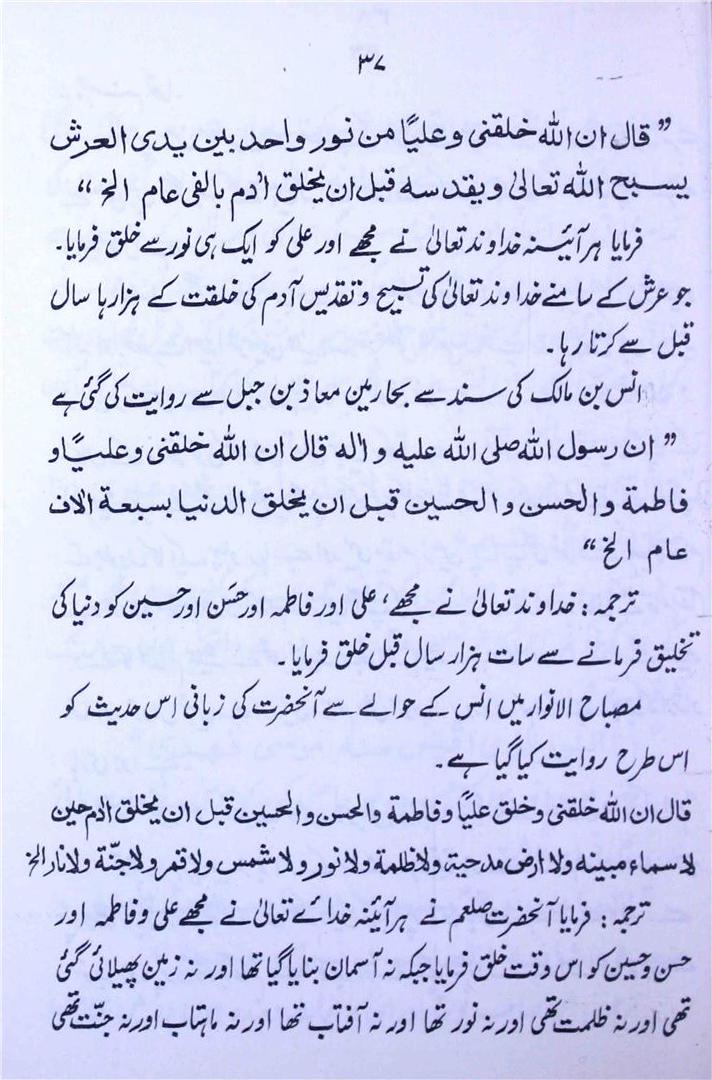 ۳۷
”قال ان الله خلقنی و علیًا من نور واحد بین یدی العرش
یسبح الله تعالیٰ و یقدسه قبل ان یخلق اٰدم بالفی عام الخ“
فرمایا ہر آئینہ خداوند تعالیٰ نے مجھے اور علی کو ایک ہی نور سے خلق فرمایا۔
جو عرش کے سامنے خداوند تعالیٰ کی تسبیح و تقدیس آدم کی خلقت کے ہزارہا سال
قبل سے کرتا رہا۔
انس بن مالک کی سند سے بحار مین معاذ بن جبل سے روایت کی گئی ہے
”ان رسول الله صلی الله علیه و اٰله قال ان الله خلقنی و علیًا و
فاطمة والحسن والحسین قبل ان یخلق الدنیا بسبعة الاف
عام الخ“
ترجمہ: خداوند تعالیٰ نے مجھے، علی اور فاطمہ اور حسَن اور حسین کو دنیا کی
تخلیق فرمانے سے سات ہزار سال قبل خلق فرمایا۔
مصباح الانوار میں انس کے حوالے سے آنحضرت کی زبانی اس حدیث کو
اس طرح روایت کیا گیا ہے۔
قال ان الله خلقنی وخلق علیًا وفاطمة والحسن والحسین قبل ان یخلق اٰدم حین
لا سماء مبینه ولا ارض مدحیة ولا ظلمة ولا نور ولا شمس ولا قمر ولا جنّة ولا نار الخ
ترجمہ: فرمایا آنحضرت صلعم نے ہر آئینہ خدائے تعالیٰ نے مجھے علی و فاطمہ اور
حسن و حسین کو اس وقت خلق فرمایا جبکہ نہ آسمان بنایا گیا تھا اور نہ زمین پھیلائی گئی
تھی اور نہ ظلمت تھی اور نہ نور تھا اور نہ آفتاب تھا اور نہ ماہتاب اور نہ جنّت تھی